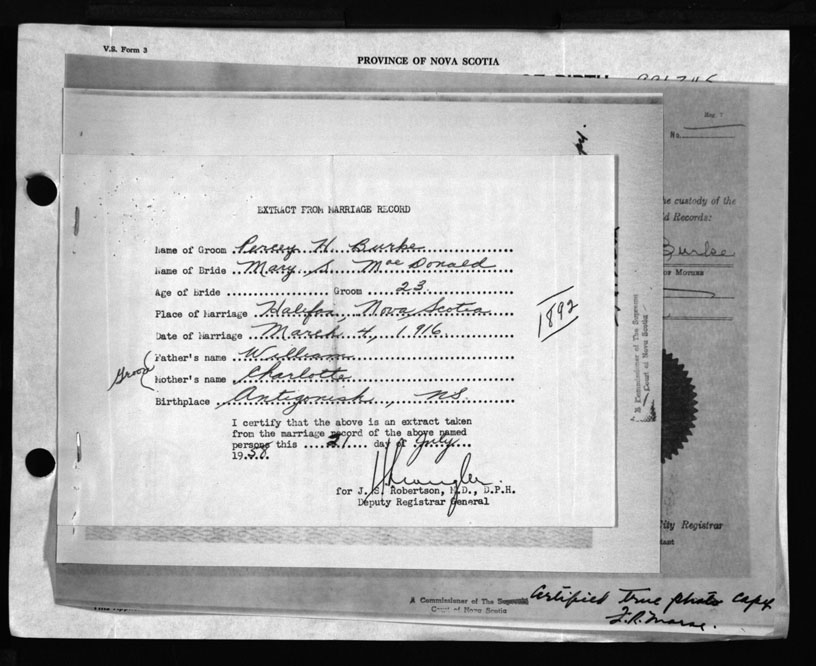 V.S. Form 3
PROVINCE OF NOVA SCOTIA
No.
the custody of the
Records:
Burke
OF MOTHER
EXTRACT FROM MARRIAGE RECORD
Name of Groom Percey H. Burke
Name of Bride Mary S. MacDonald
Age of Bride Groom 23
Place of Marriage Halifax, Nova Scotia
Date of Marriage March 4, 1916
1892
Groom
Father's name William
Mother's name Charlotte
Birthplace Antigonish, NS.
I certify that the above is an extract taken
from the marriage record of the above named
persons this 21 day of July
1950.
for J. S. Robertson, M.D., D.P.H.
Deputy Registrar General
A Commissioner of The Supreme
Court of Nova Scotia
City Registrar
A Commissioner of The Supreme
Court of Nova Scotia
Certified True photo copy